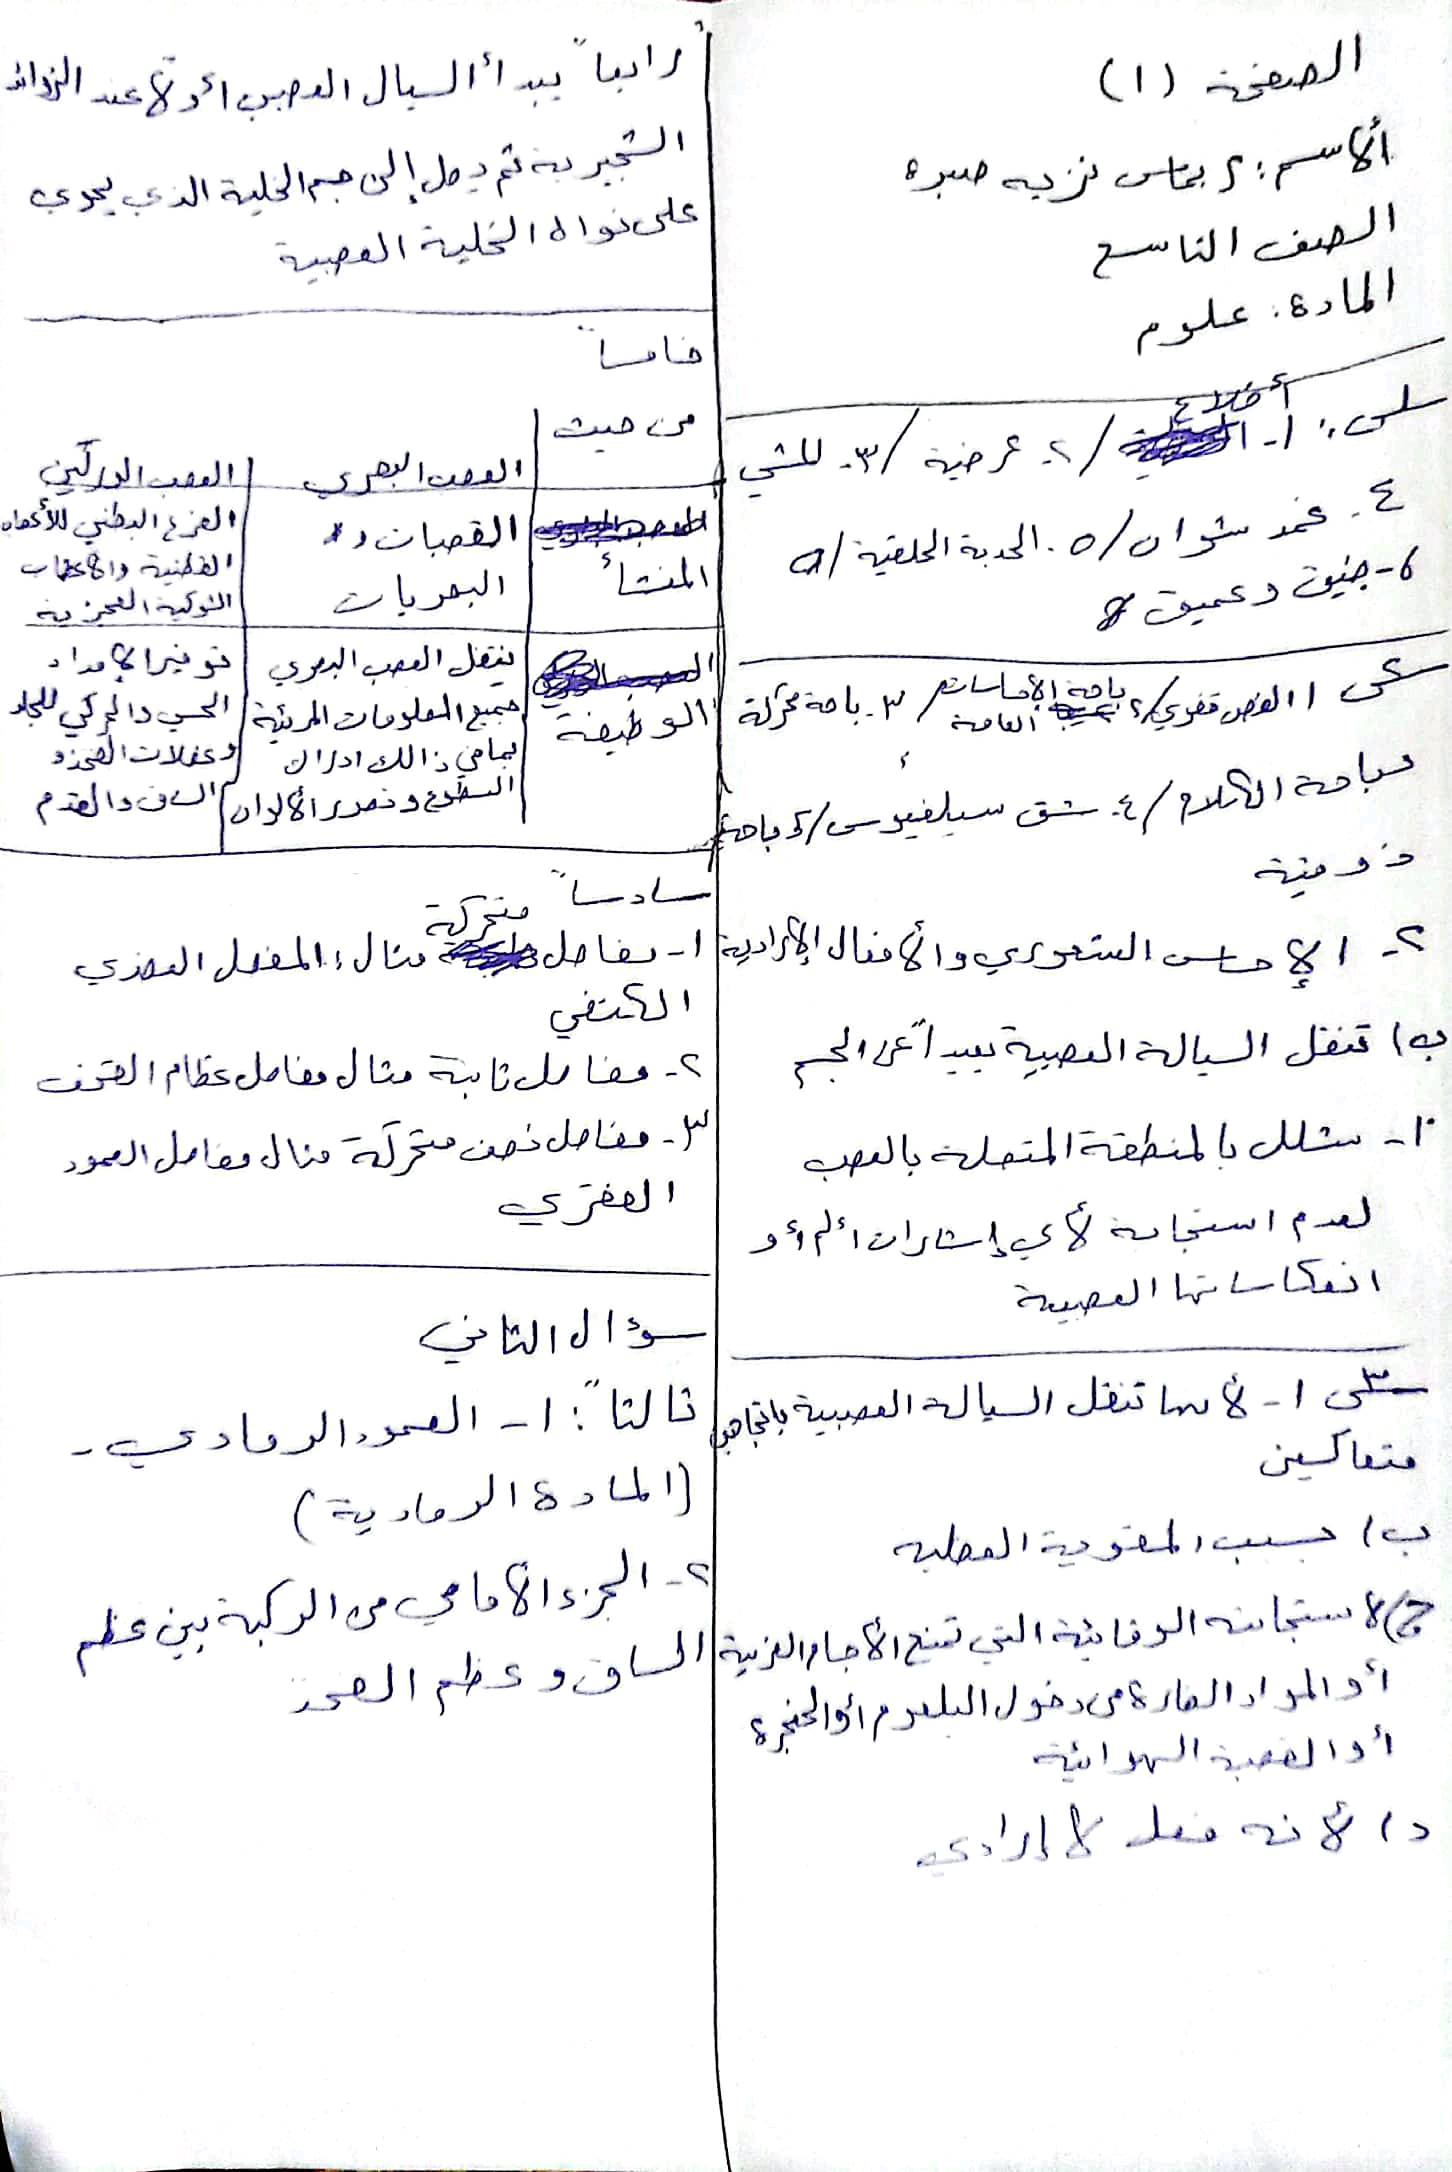 الصفحة (١)
ألاسم: ريماس نزيه صبره
الصف التاسع
المادة: علوم
س١: ١- أضلاع / ٢- عرضية / ٣- للمشي
٤- غمد شوان / ٥- الحدبة الحلقية /
٦- جنيق وعميق
س٢ ١ الفص قفوي / ٢ باحة الإحساسات العامة / ٣- باحة محركة
وباحة الكلام / ٤- شق سيلفيوس / ٥ باحة
ذوقية
٢- الإحساس الشعوري وألأفعال الإرادية
ب) تنقل السيالة العصبية بعيداً عن الجسم
١- شلل بالمنطقة المتصلة بالعصب
لعدم استجابة لأي إشارات ألم أو
انعكاساتها العصبية
س٣ ١- لأنها تنقل السيالة العصبية باتجاهين
متعاكسين
ب) بسبب المقوية العضلية
ج) لاستجابته الوقائية التي تمنع الأجسام الغريبة
أو المواد الضارة من دخول البلعوم أو الحنجرة
أو القصبة الهوائية
د) لأنه فعل لا إرادي
رابعاً يبدأ السيال العصبي أولاً عند الزوائد
الشجيرية ثم يصل إلى جسم الخلية الذي يحوي
على نواة الخلية العصبية
خامساً
من حيث العصب البصري العصب الوركي
المنشأ القصبات و البصريات الفرع البطني للأعصاب
القطنية والأعصاب
الشوكية العجزية
الوظيفة ينقل العصب البصري توفير الإمداد
جميع المعلومات المرئية الحسي والحركي للجلد
بما في ذالك ادراك وعضلات الفخذ و
السطوع وتصور الألوان الساق والقدم
سادساً
١- مفاصل متحركة مثال: المفصل العضدي
الكتفي
٢- مفاصل ثابتة مثال مفاصل عظام القحف
٣- مفاصل نصف متحركة مثال مفاصل العمود
الفقري
سؤال الثاني
ثالثاً: ١- العمود الرمادي -
(المادة الرمادية)
٢- الجزء الأمامي من الركبة بين عظم
الساق وعظم الفخذ